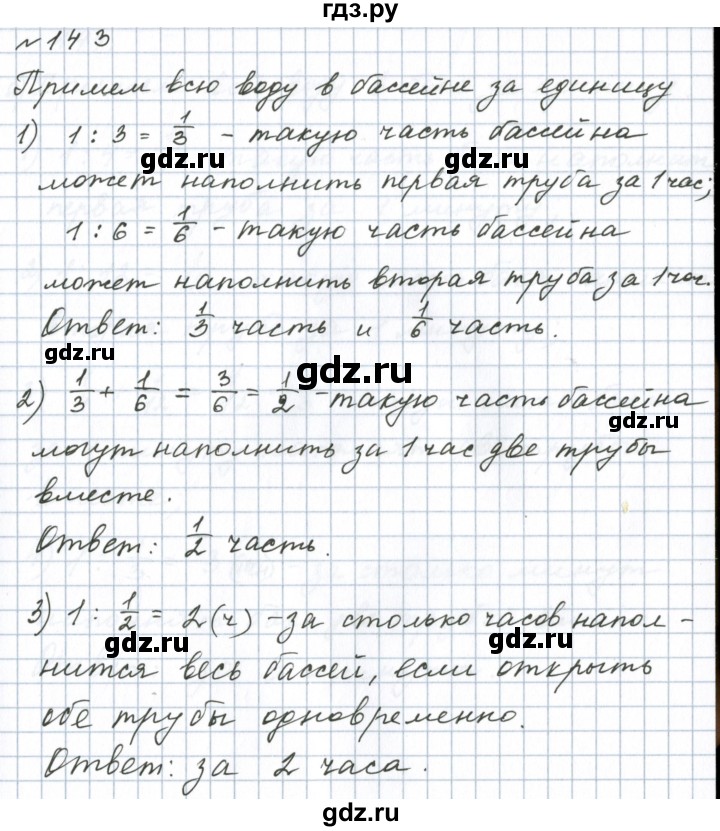 гдз.ру
№ 143
Примем всю воду в бассейне за единицу
1) 1 : 3 = 1/3 - такую часть бассейна
gdz.ru gdz.ru
может наполнить первая труба за 1 час;
1 : 6 = 1/6 - такую часть бассейна
gdz.ru gdz.ru
может наполнить вторая труба за 1 час.
Ответ: 1/3 часть и 1/6 часть.
gdz.ru
2) 1/3 + 1/6 = 3/6 = 1/2 - такую часть бассейна
gdz.ru
могут наполнить за 1 час две трубы
gdz.ru
вместе.
Ответ: 1/2 часть.
gdz.ru
3) 1 : 1/2 = 2 (ч) - за столько часов напол-
gdz.ru gdz.ru
нится весь бассей, если открыть
обе трубы одновременно.
gdz.ru
Ответ: за 2 часа.
gdz.ru
gdz.ru